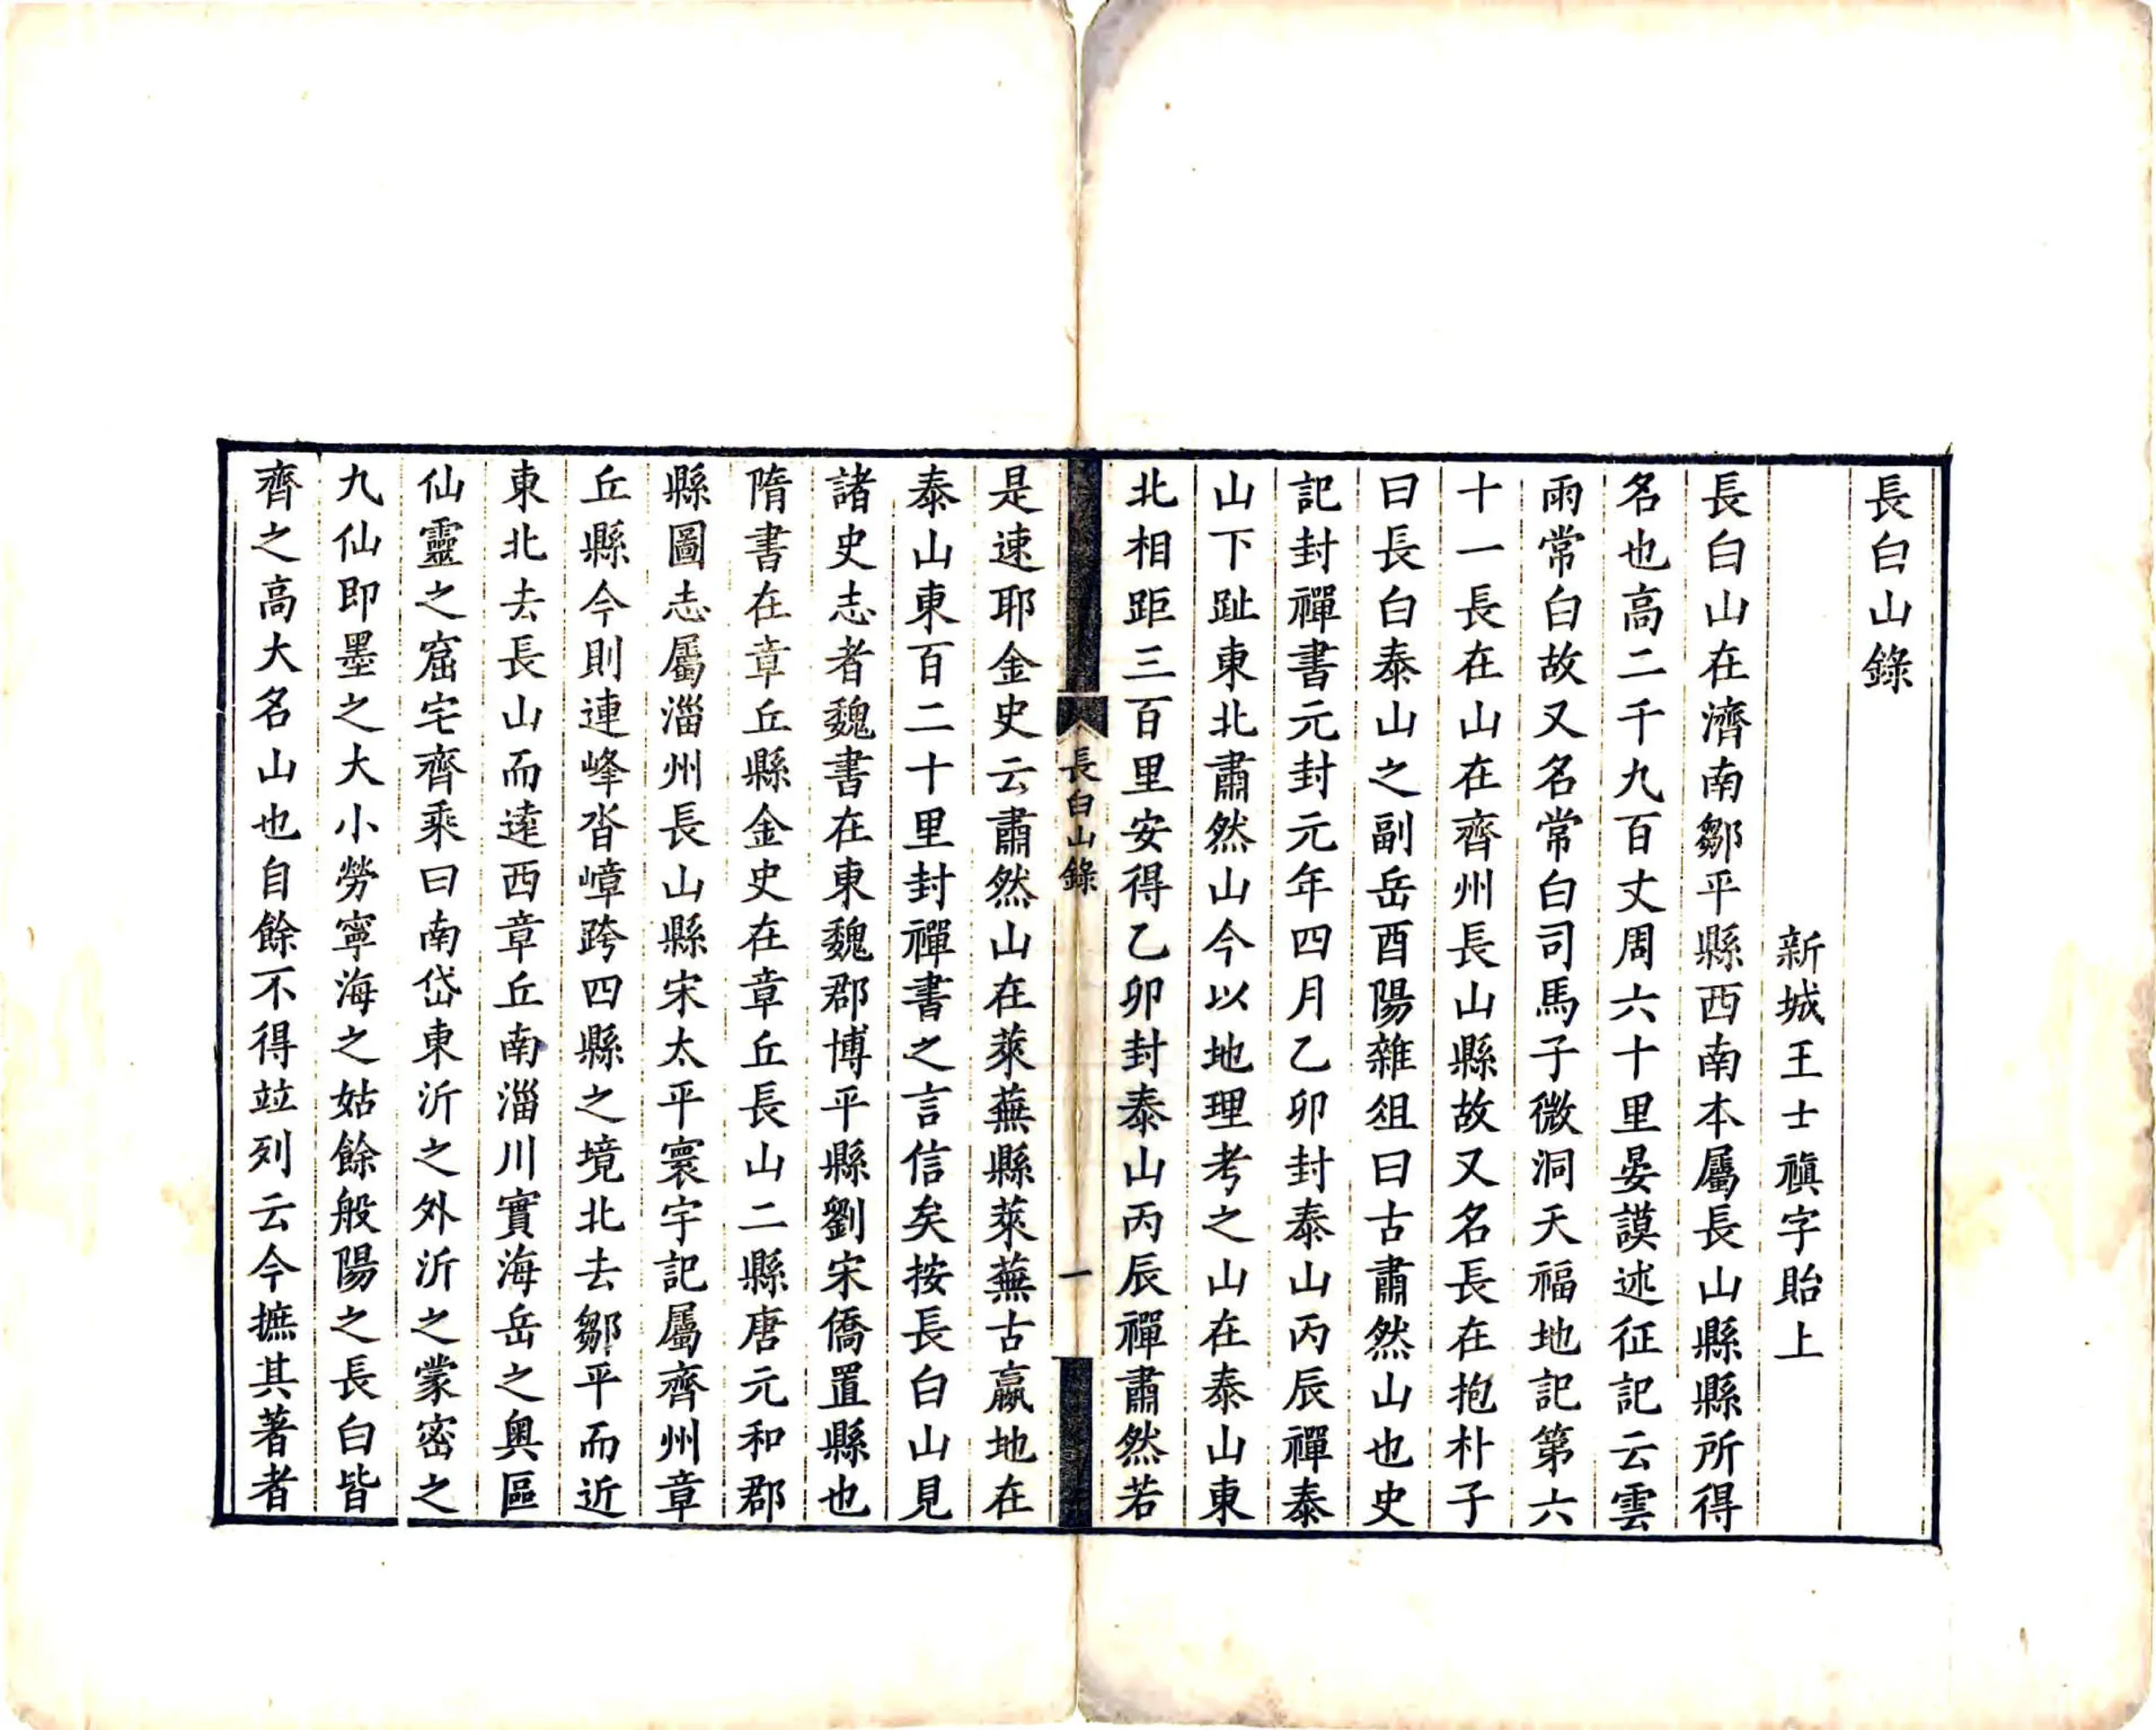 長白山錄
新城王士禛字貽上
長白山在濟南鄒平縣西南本屬長山縣縣所得
名也高二千九百丈周六十里晏謨述征記云雲
雨常白故又名常白司馬子微洞天福地記第六
十一長在山在齊州長山縣故又名長在抱朴子
曰長白泰山之副岳酉陽雜俎曰古肅然山也史
記封禪書元封元年四月乙卯封泰山丙辰禪泰
山下趾東北肅然山今以地理考之山在泰山東
北相距三百里安得乙卯封泰山丙辰禪肅然若
長白山錄
一
是速耶金史云肅然山在萊蕪縣萊蕪古嬴地在
泰山東百二十里封禪書之言信矣按長白山見
諸史志者魏書在東魏郡博平縣劉宋僑置縣也
隋書在章丘縣金史在章丘長山二縣唐元和郡
縣圖志屬淄州長山縣宋太平寰宇記屬齊州章
丘縣今則連峰沓嶂跨四縣之境北去鄒平而近
東北去長山而遠西章丘南淄川實海岳之奧區
仙靈之窟宅齊乘曰南岱東沂之外沂之蒙密之
九仙即墨之大小勞寧海之姑餘般陽之長白皆
齊之高大名山也自餘不得竝列云今摭其著者